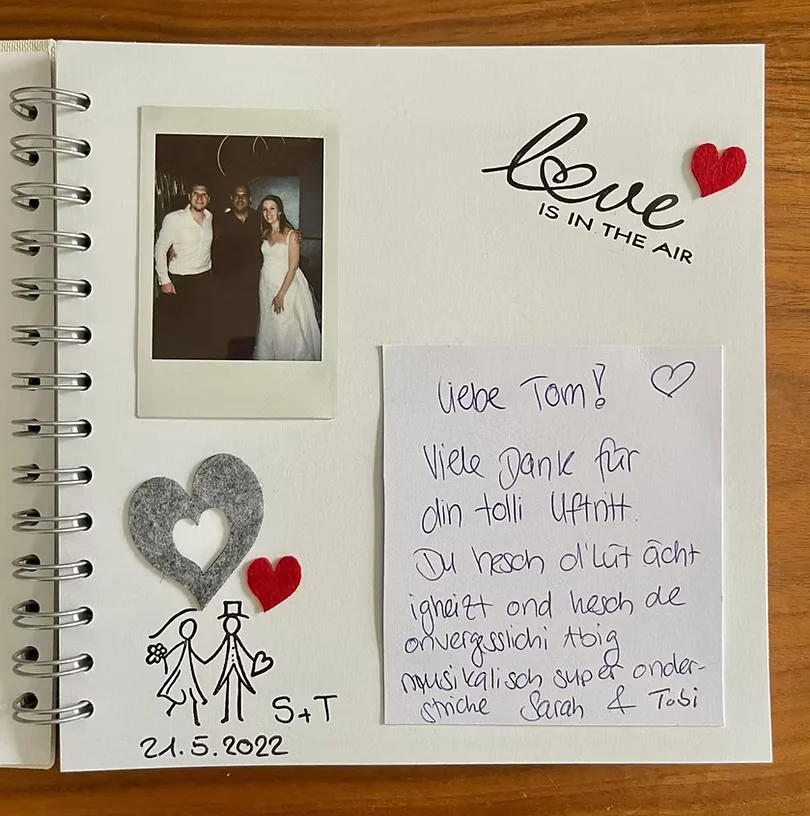 love
IS IN THE AIR
Liebe Tom!
Viele Dank für
din tolli Uftritt.
Du hesch d'Lüt ächt
igheizt ond hesch de
onvergsslichi Abig
musikalisch super onder-
striche Sarah & Tobi
S+T
21.5.2022